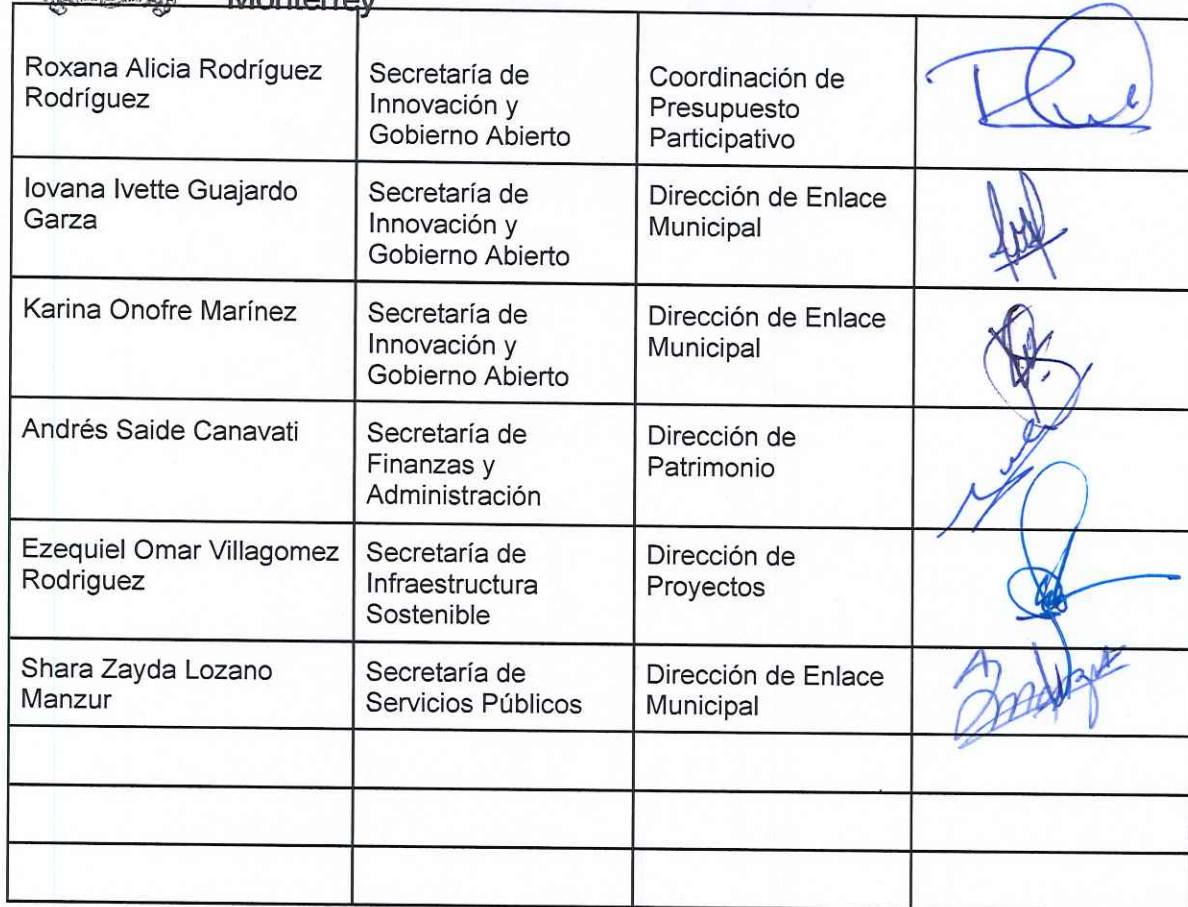 Monterrey
Roxana Alicia Rodríguez
Rodríguez
Secretaría de
Innovación y
Gobierno Abierto
Coordinación de
Presupuesto
Participativo
Iovana Ivette Guajardo
Garza
Secretaría de
Innovación y
Gobierno Abierto
Dirección de Enlace
Municipal
Karina Onofre Marínez
Secretaría de
Innovación y
Gobierno Abierto
Dirección de Enlace
Municipal
Andrés Saide Canavati
Secretaría de
Finanzas y
Administración
Dirección de
Patrimonio
Ezequiel Omar Villagomez
Rodriguez
Secretaría de
Infraestructura
Sostenible
Dirección de
Proyectos
Shara Zayda Lozano
Manzur
Secretaría de
Servicios Públicos
Dirección de Enlace
Municipal